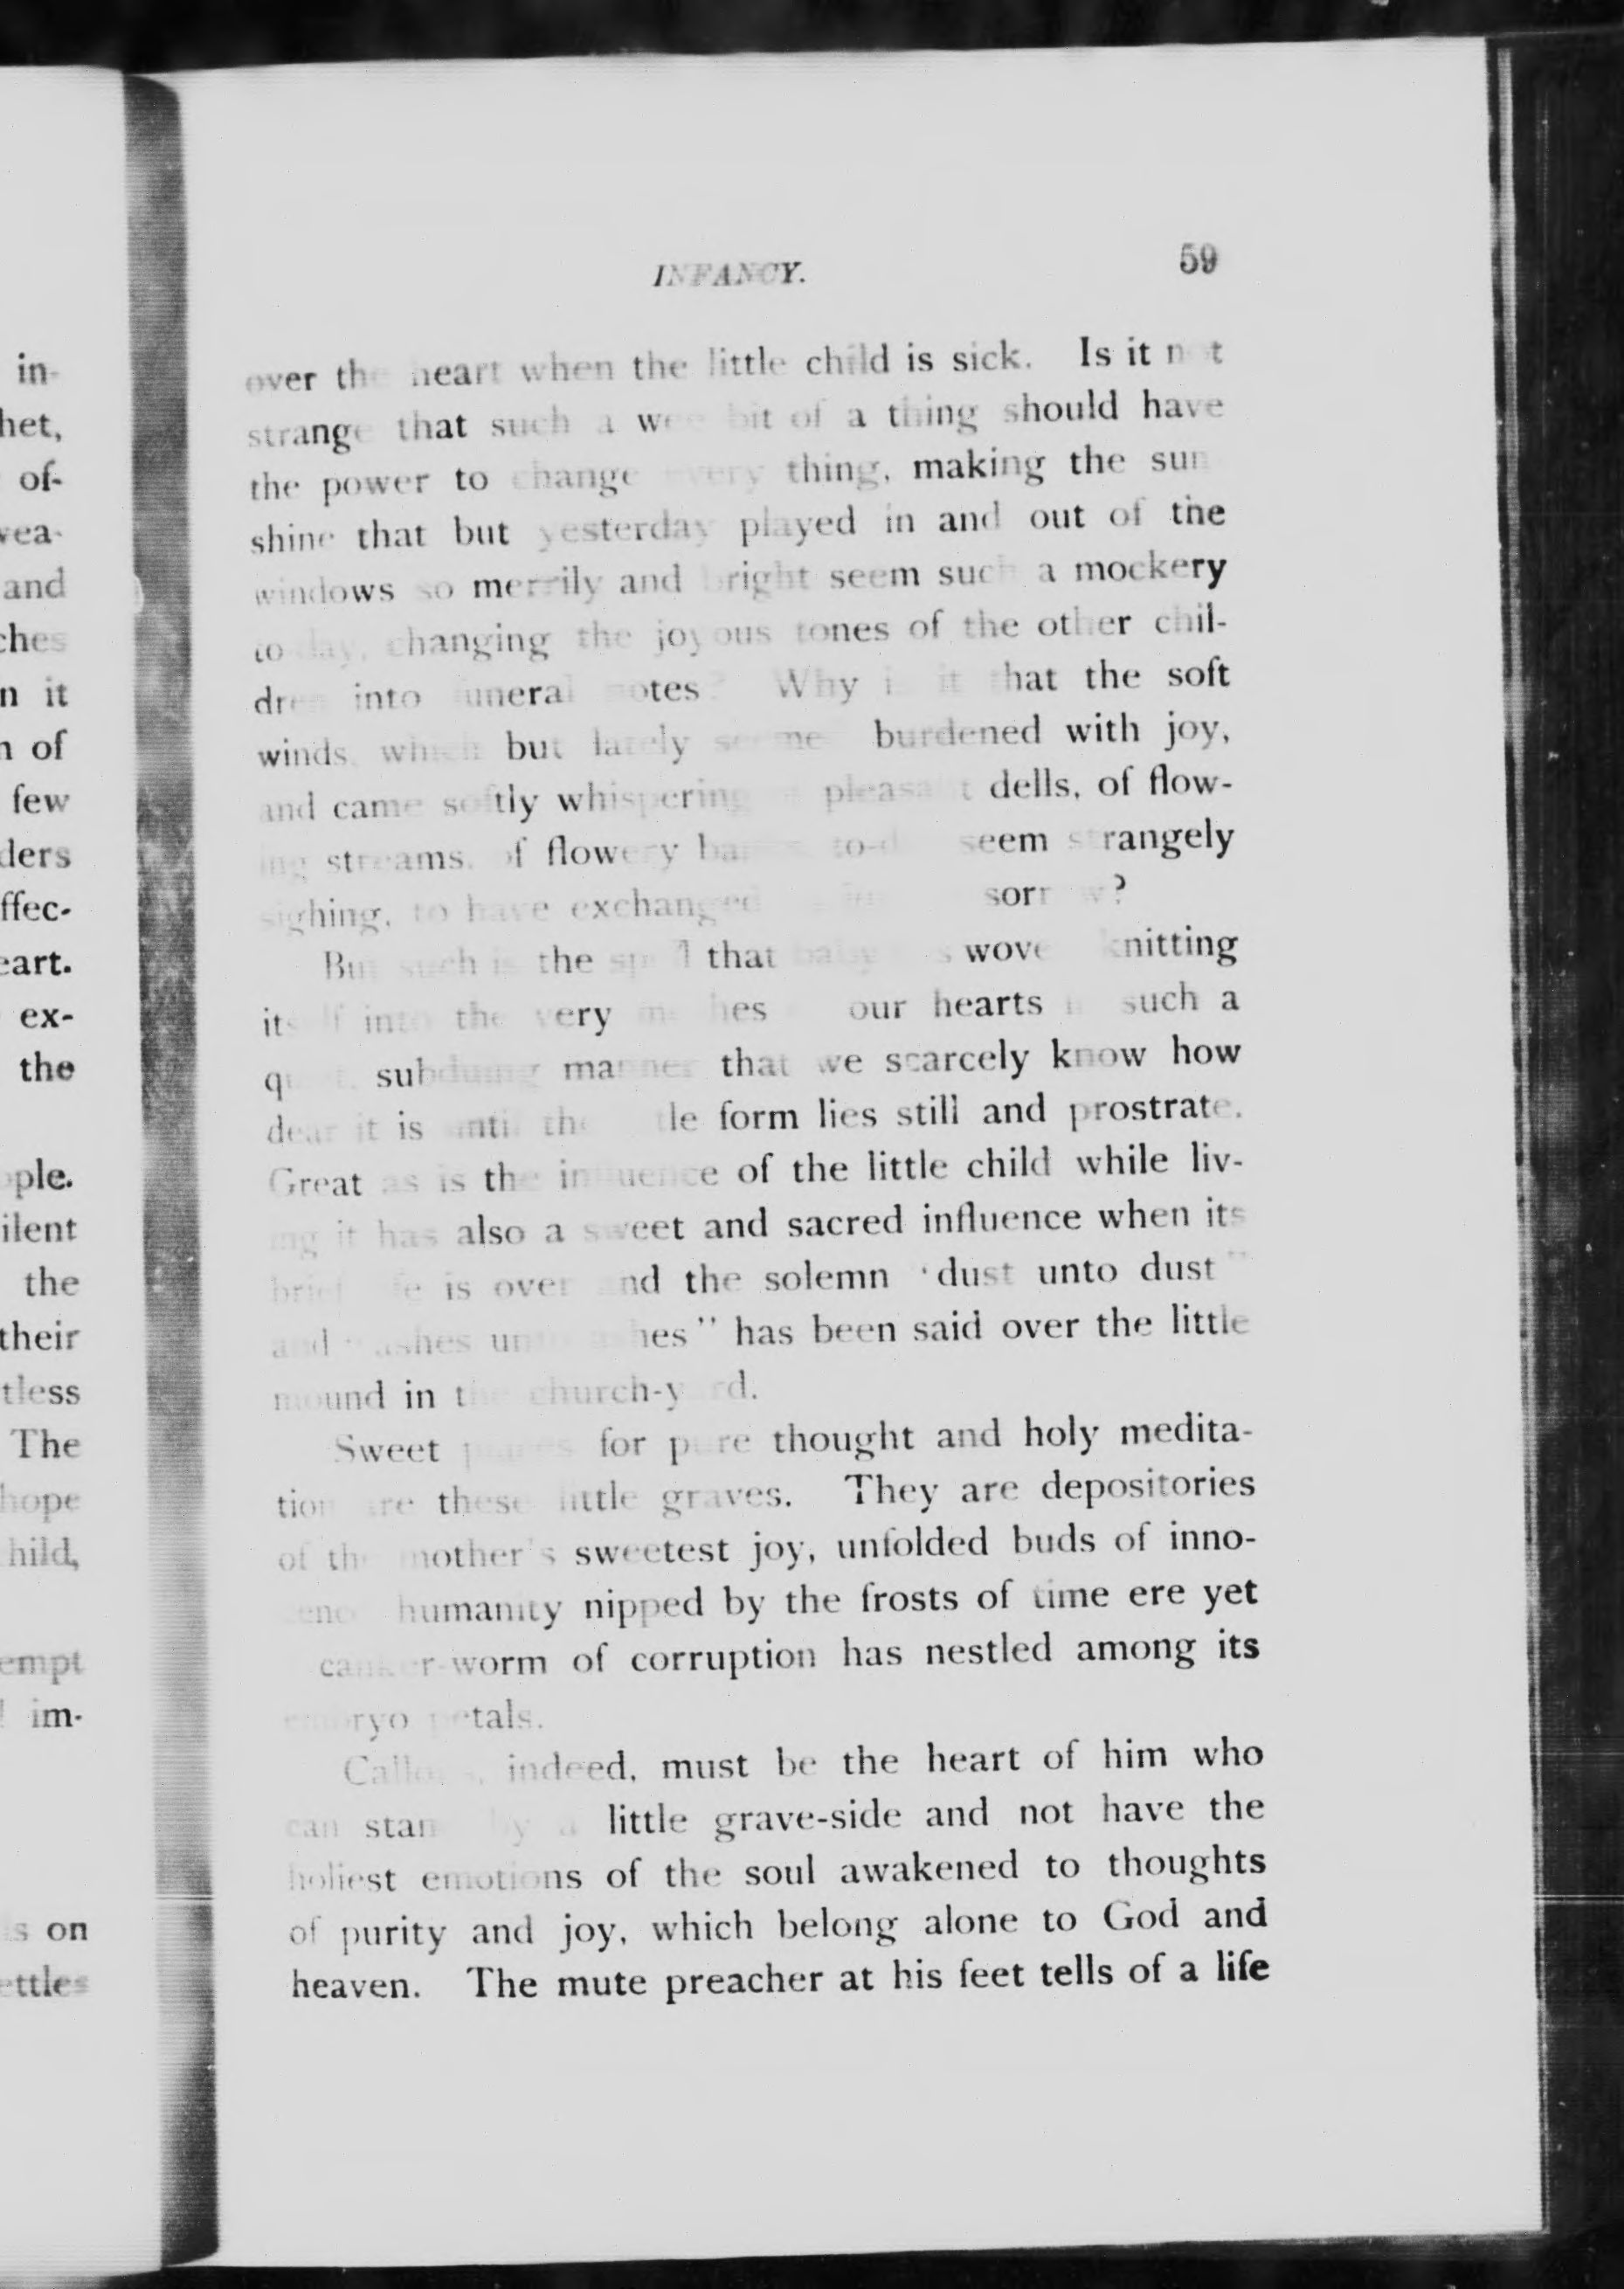 INFANCY. 59
over the heart when the little child is sick. Is it not
strange that such a wee bit of a thing should have
the power to change every thing, making the sun
shine that but yesterday played in and out of the
windows so merrily and bright seem such a mockery
to day, changing the joyous tones of the other chil-
dren into funeral notes? Why is it that the soft
winds, which but lately seemed burdened with joy,
and came softly whispering of pleasant dells, of flow-
ing streams, of flowery banks to-day seem strangely
sighing, to have exchanged sorrow?
But such is the spell that baby has wove knitting
itself into the very meshes of our hearts in such a
quiet, subduing manner that we scarcely know how
dear it is until the little form lies still and prostrate.
Great as is the influence of the little child while liv-
ing it has also a sweet and sacred influence when its
brief life is over and the solemn "dust unto dust"
and "ashes unto ashes" has been said over the little
mound in the church-yard.
Sweet places for pure thought and holy medita-
tion are these little graves. They are depositories
of the mother's sweetest joy, unfolded buds of inno-
cence humanity nipped by the frosts of time ere yet
canker-worm of corruption has nestled among its
embryo petals.
Callous, indeed, must be the heart of him who
can stand by a little grave-side and not have the
holiest emotions of the soul awakened to thoughts
of purity and joy, which belong alone to God and
heaven. The mute preacher at his feet tells of a life